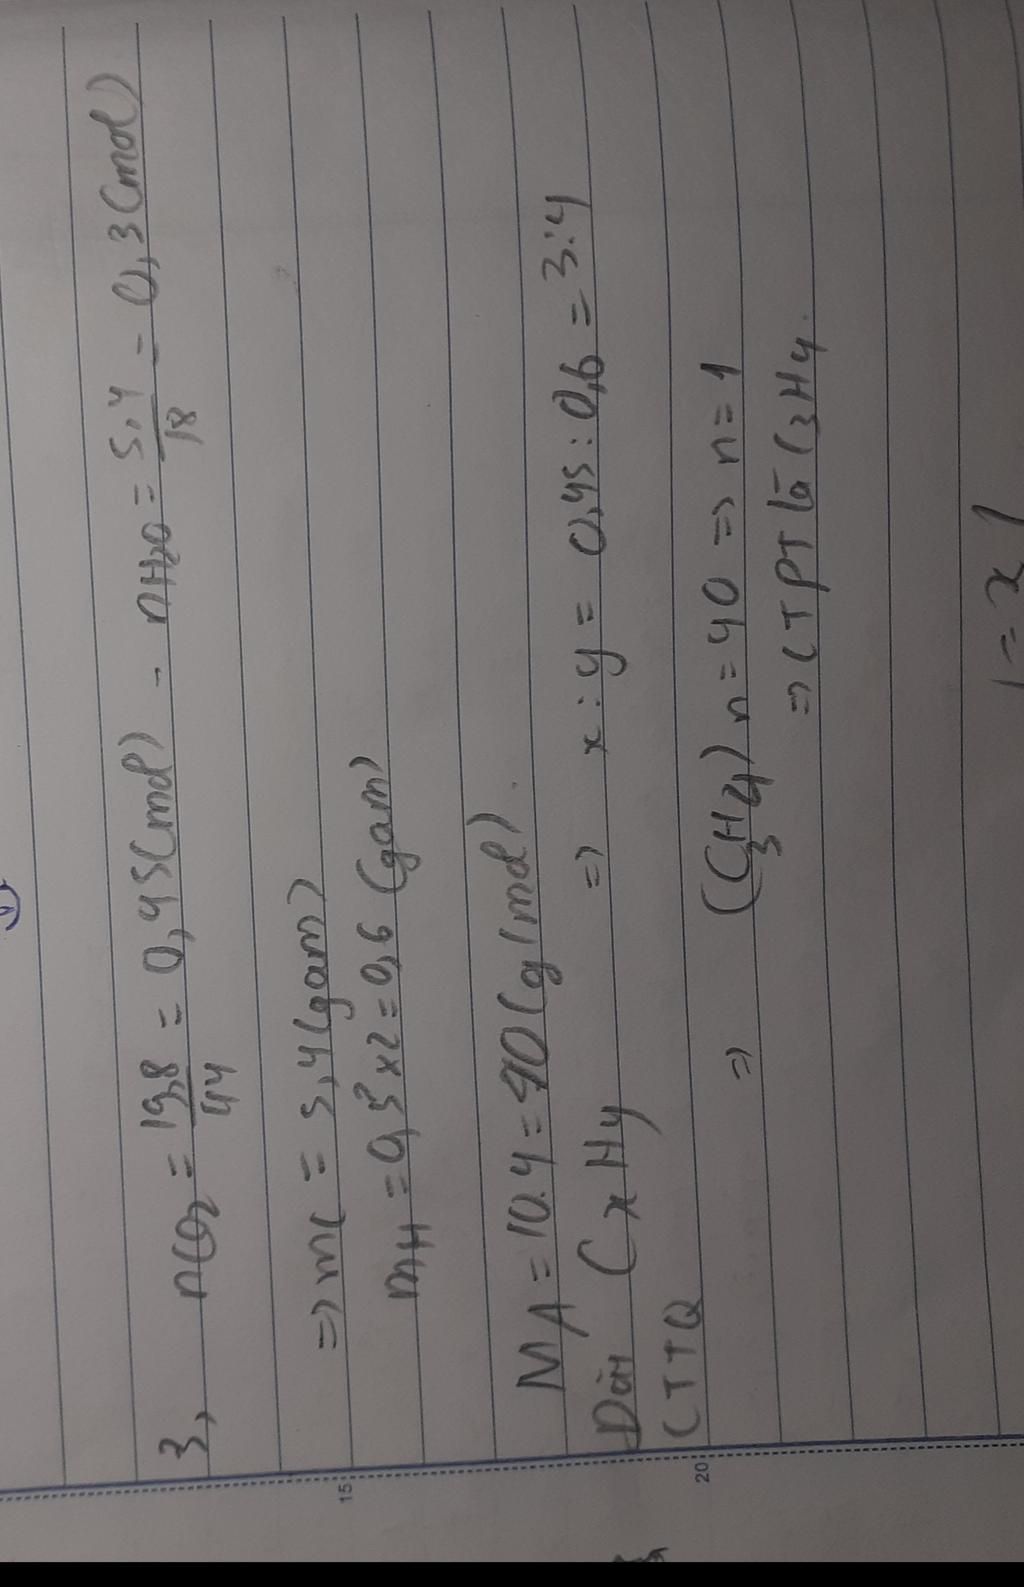 3, nCO2 = 19,8/44 = 0,45 (mol) - nH2O = 5,4/18 = 0,3 (mol)
=> mC = 5,4 (gam)
mH = 0,3 x 2 = 0,6 (gam)
MA = 10.4 = 40 (g/mol).
Dạn CxHy => x : y = 0,45 : 0,6 = 3:4
CTTQ
=> (C3H4)n = 40 => n = 1
=> CTPT là C3H4.
15
20